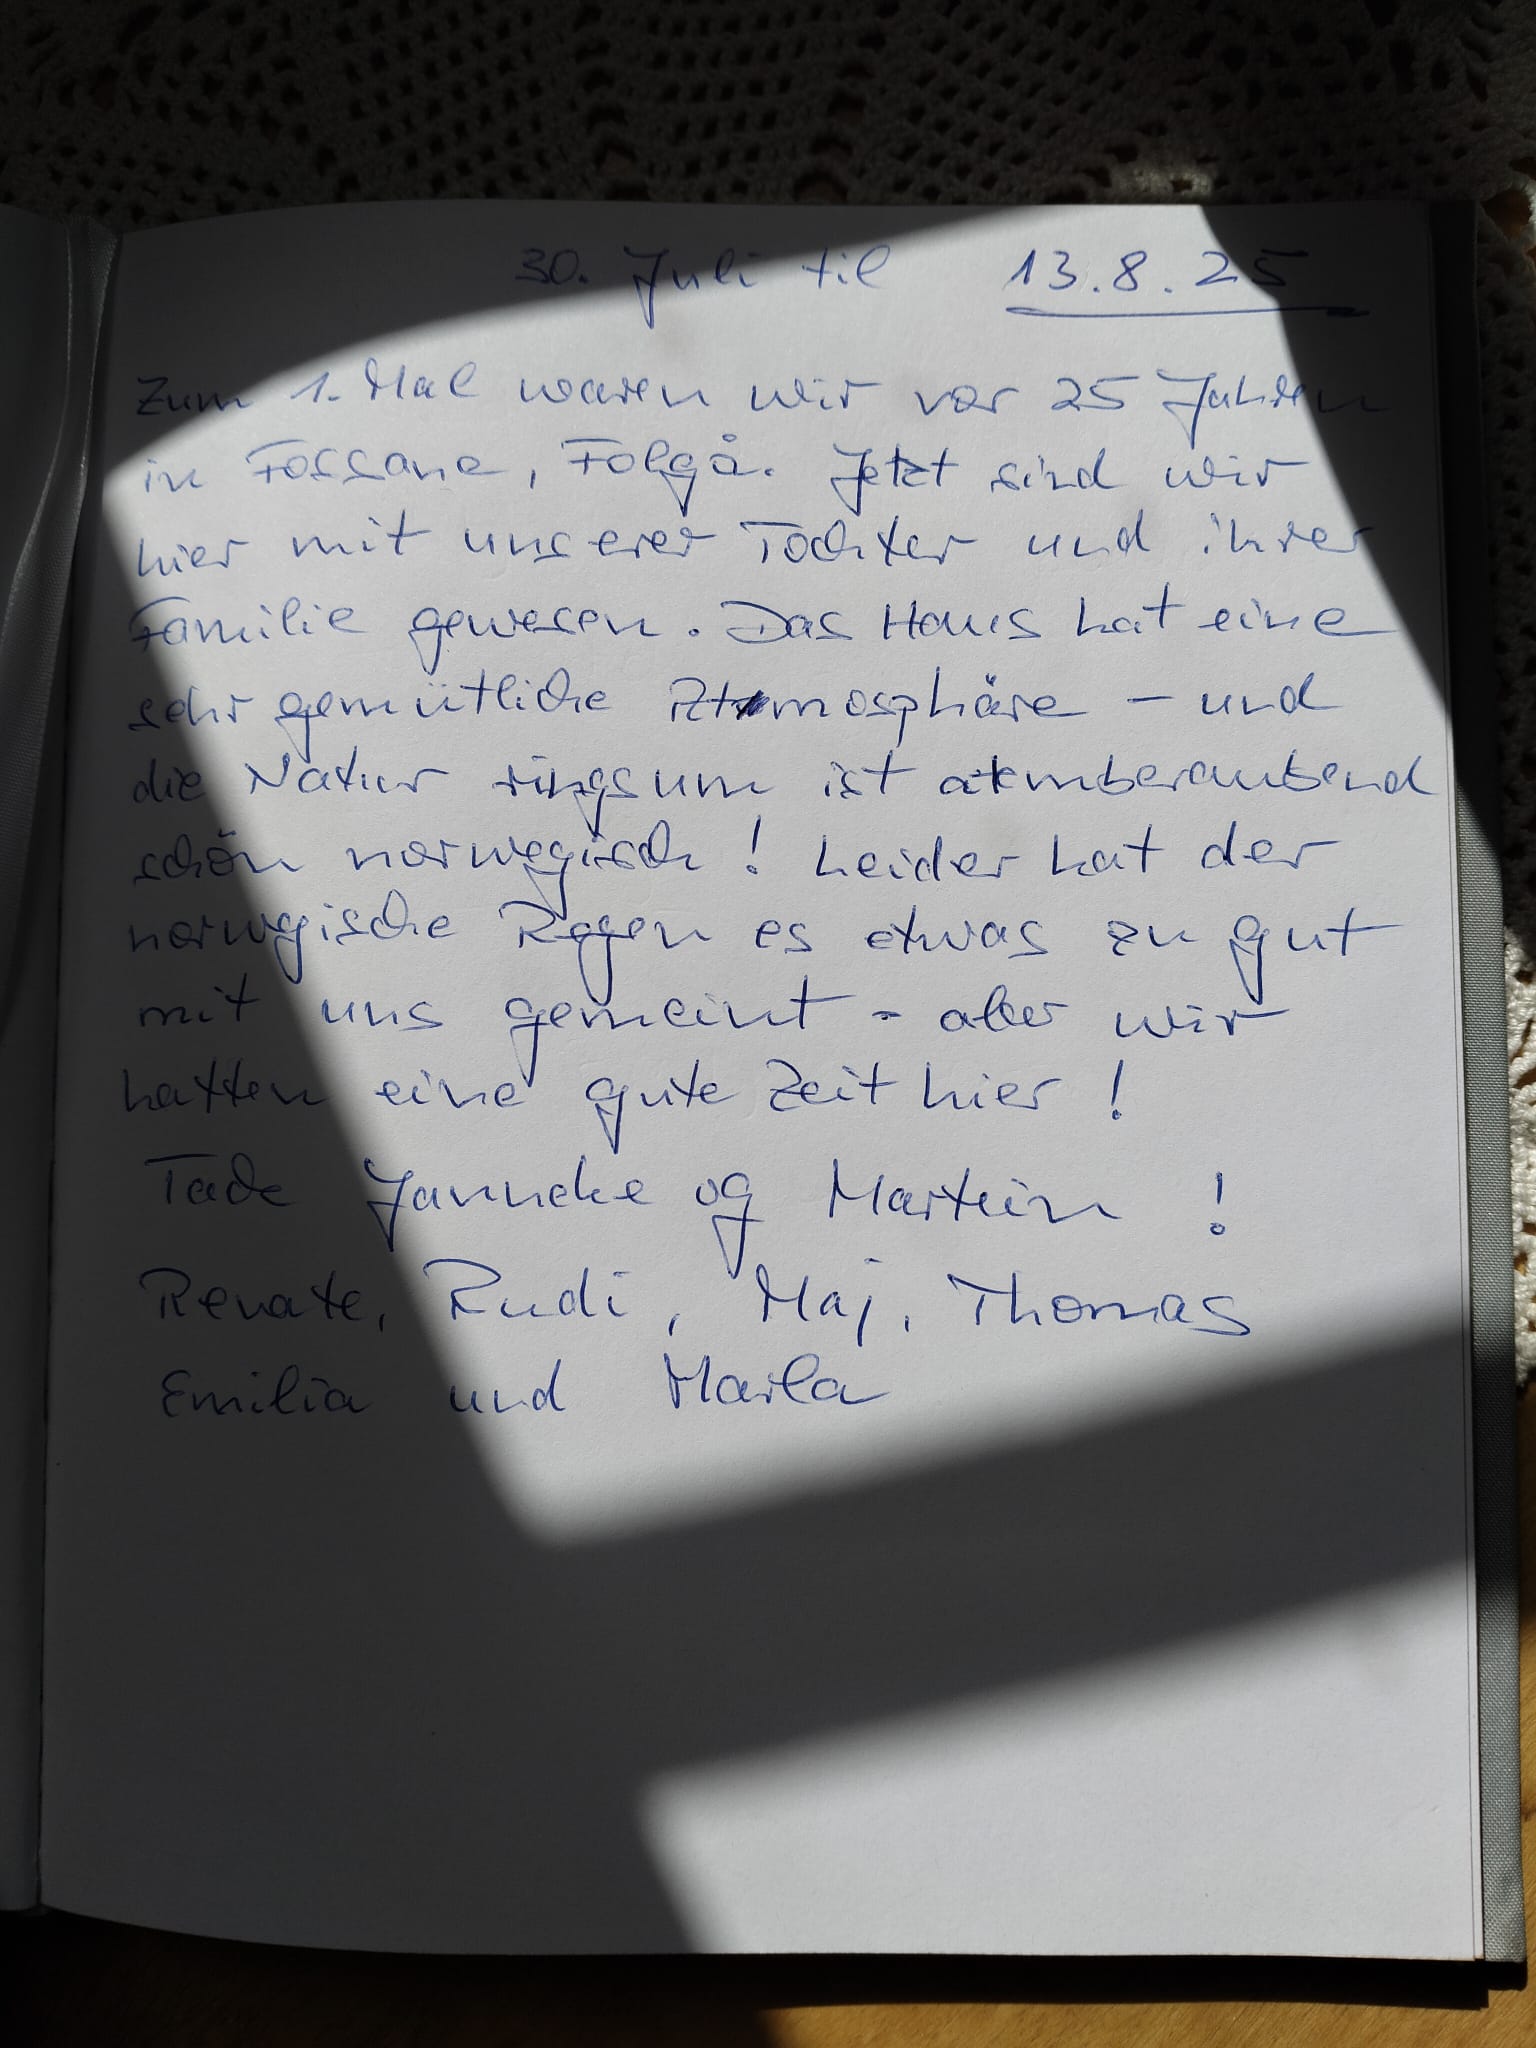 30. Juli til 13.8.25
Zum 1. Mal waren wir vor 25 Jahren
in Fossane, Folgå. Jetzt sind wir
hier mit unserer Tochter und ihrer
Familie gewesen. Das Haus hat eine
sehr gemütliche Atmosphäre - und
die Natur ringsum ist atemberaubend
schön norwegisch! Leider hat der
norwegische Regen es etwas zu gut
mit uns gemeint - aber wir
hatten eine gute Zeit hier!
Takk Janneke og Martein!
Renate, Rudi, Maj, Thomas
Emilia und Marla